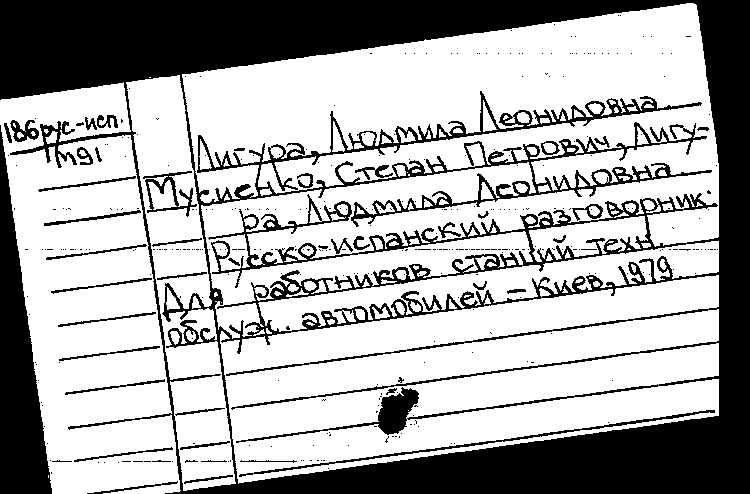 186рус-исп.
М91
Лигура, Людмила Леонидовна
Мусиенко, Степан Петрович, Лигу-
ра, Людмила Леонидовна
Русско-испанский разговорник:
Для работников станций техн.
обслуж. автомобилей - Киев, 1979